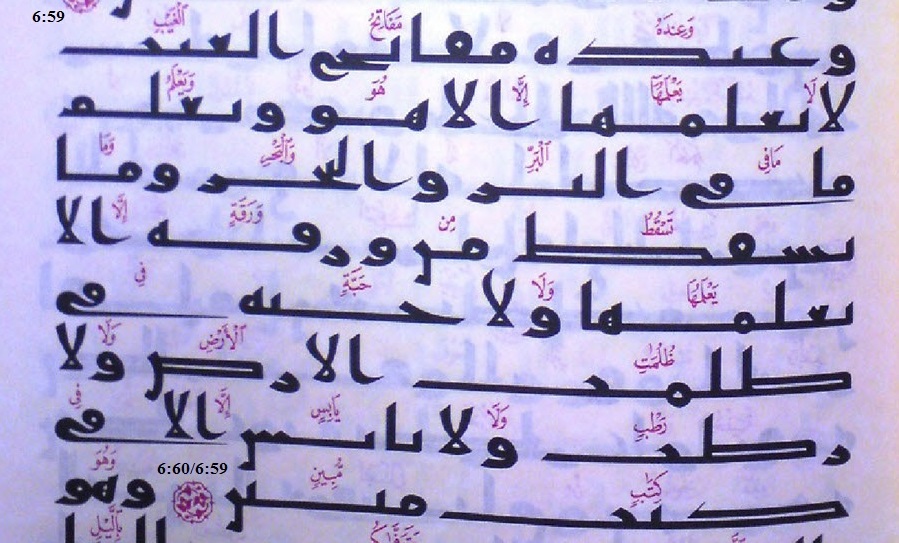 6:59
وَعِندَهُ مَفَاتِحُ ٱلْغَيْبِ
وعنده مفاتح الغيب
لَا يَعْلَمُهَآ إِلَّا هُوَ وَيَعْلَمُ
لا يعلمها الا هو ويعلم
مَافِى ٱلْبَرِّ وَٱلْبَحْرِ وَمَا
ما في البر والبحر وما
تَسْقُطُ مِن وَرَقَةٍ إِلَّا
تسقط من ورقه الا
يَعْلَمُهَا وَلَا حَبَّةٍ فِى
يعلمها ولا حبه في
ظُلُمَٰتِ ٱلْأَرْضِ وَلَا
ظلمت الارض ولا
رَطْبٍ وَلَا يَابِسٍ إِلَّا فِى
رطب ولا يابس الا في
6:60/6:59
كِتَٰبٍ مُّبِينٍ وَهُوَ
كتب مبين وهو
بِٱلَّيْلِ